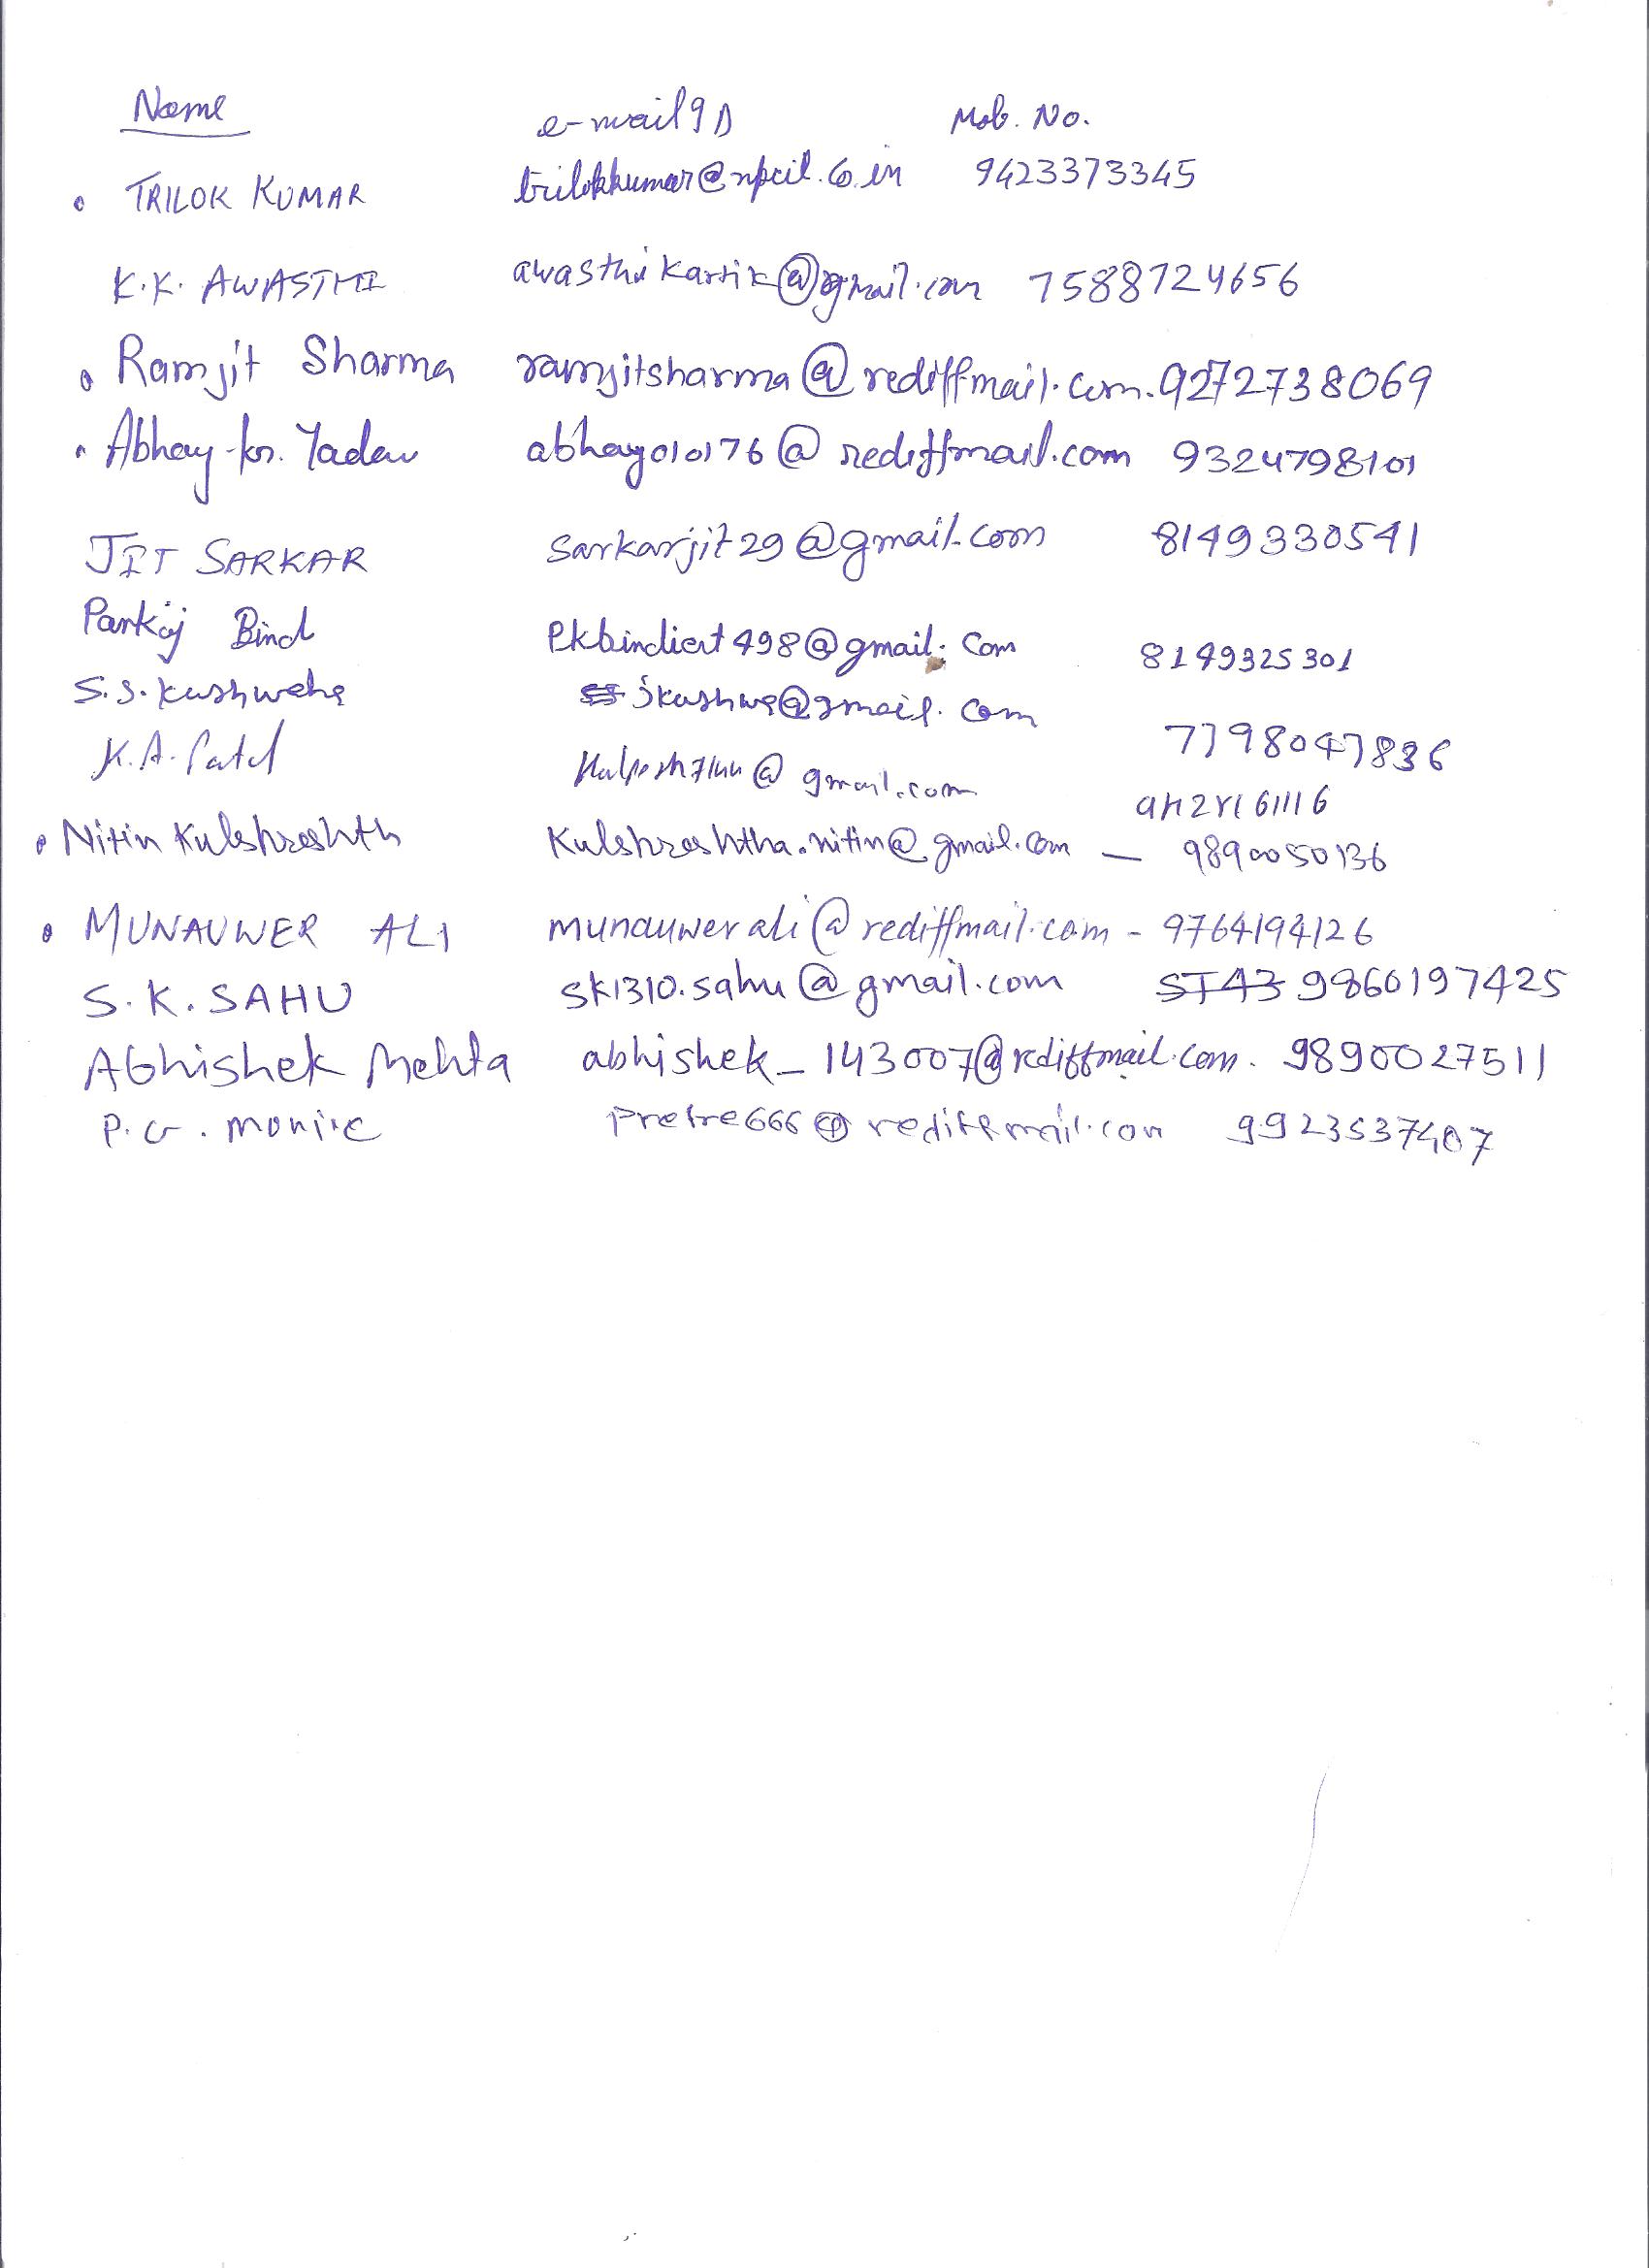 Name e-mail ID Mob. No.
TRILOK KUMAR trilokkumar@npcil.co.in 9423373345
K.K. AWASTHI awasthikartik@gmail.com 7588724656
Ramjit Sharma ramjitsharma@rediffmail.com. 9272738069
Abhay kr. Yadav abhay010176@rediffmail.com 9324798101
JIT SARKAR Sarkarjit29@gmail.com 8149330541
Pankaj Bind 8149325301
S.S. Kushwaha jkushwa@gmail.com 7798047836
K.A. Patel @gmail.com
Nitin Kulshreshth Kulshreshtha.nitin@gmail.com — 9890050136
MUNAUWER ALI munauwerali@rediffmail.com - 9764194126
S.K. SAHU sk1310.sahu@gmail.com ST43 9860197425
Abhishek Mehta abhishek_143007@rediffmail.com. 9890027511
P.G. 9923537407